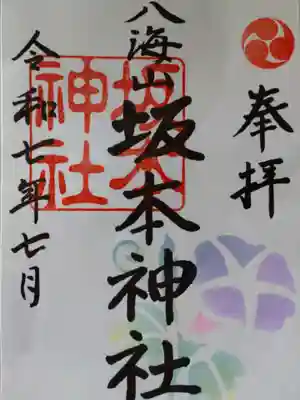 奉拝
八海山坂本神社
令和七年七月
坂本
神社